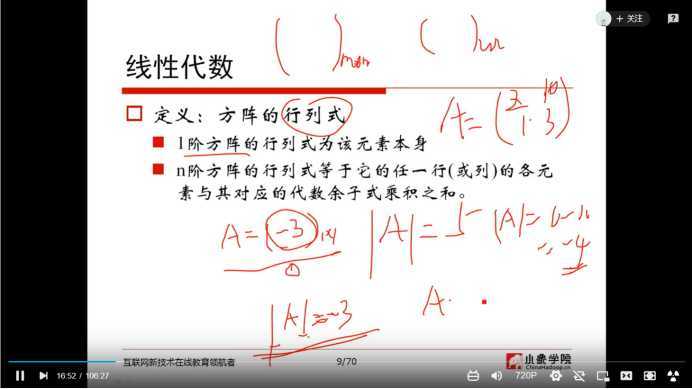 + 关注
( )m×n ( )n×n
线性代数
A = (2 10
1 3)
定义：方阵的行列式
1阶方阵的行列式为该元素本身
n阶方阵的行列式等于它的任一行(或列)的各元
素与其对应的代数余子式乘积之和。
A = (-3)1×1
|A| = 5
|A| = 6-10
= -4
|A| = -3
A.
互联网新技术在线教育领航者
9/70
小象学院
ChinaHadoop.cn
16:52 / 106:27
720P